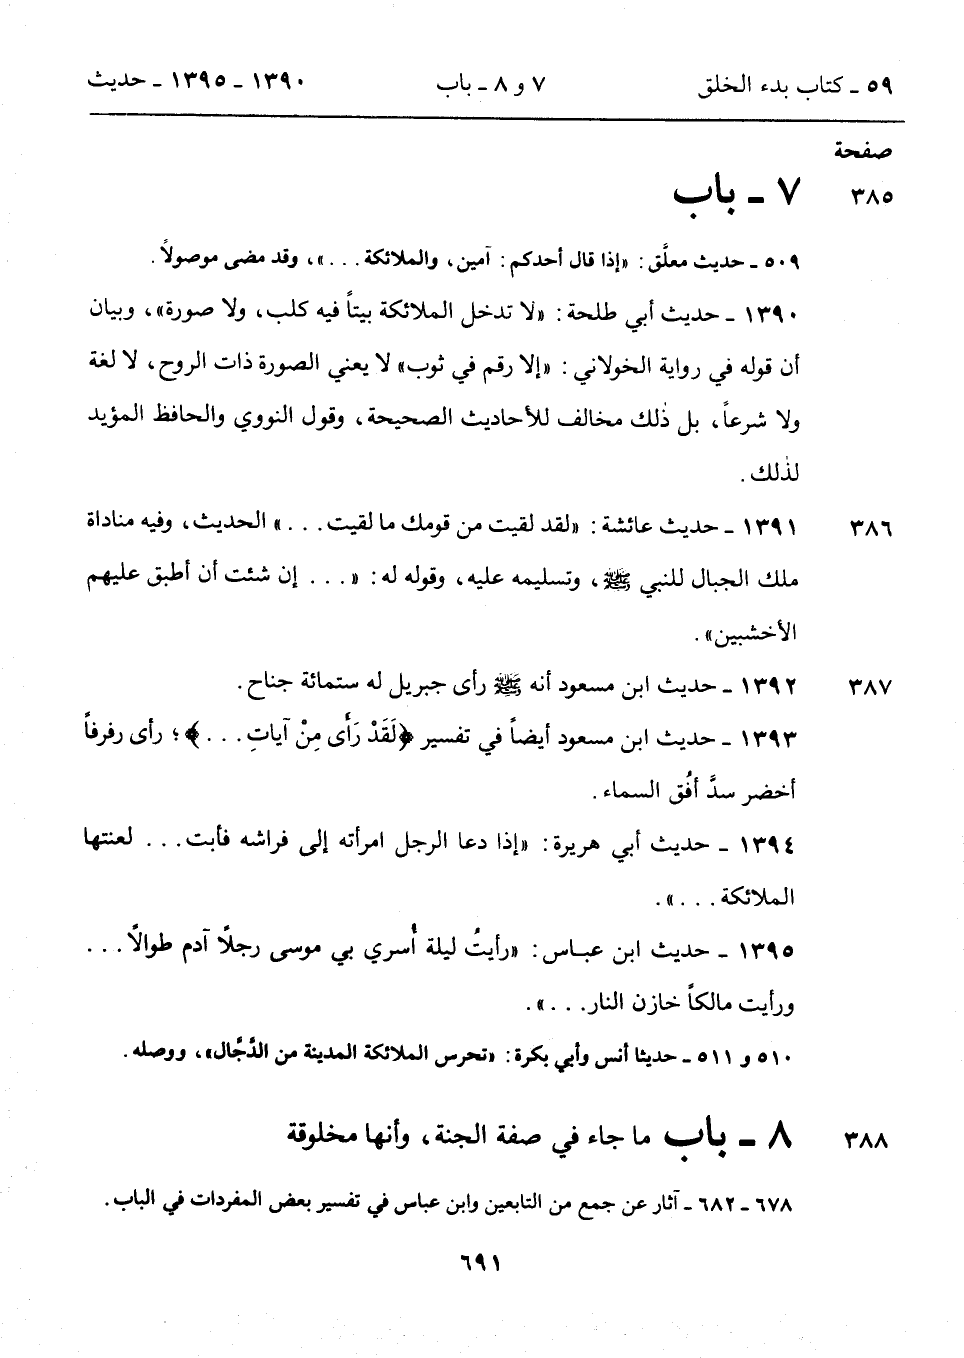 ٥٩ ـ كتاب بدء الخلق ٧ و ٨ ـ باب ١٣٩٠ ـ ١٣٩٥ ـ حديث
صفحة
٣٨٥ ٧ ـ باب
٥٠٩ ـ حديث معلَّق: «إذا قال أحدكم: آمين، والملائكة...»، وقد مضى موصولاً.
١٣٩٠ ـ حديث أبي طلحة: «لا تدخل الملائكة بيتاً فيه كلب، ولا صورة»، وبيان
أن قوله في رواية الخولاني: «إلا رقم في ثوب» لا يعني الصورة ذات الروح، لا لغة
ولا شرعاً، بل ذٰلك مخالف للأحاديث الصحيحة، وقول النووي والحافظ المؤيد
لذٰلك.
٣٨٦ ١٣٩١ ـ حديث عائشة: «لقد لقيت من قومك ما لقيت...» الحديث، وفيه مناداة
ملك الجبال للنبي ﷺ، وتسليمه عليه، وقوله له: «... إن شئت أن أطبق عليهم
الأخشبين».
٣٨٧ ١٣٩٢ ـ حديث ابن مسعود أنه ﷺ رأى جبريل له ستمائة جناح.
١٣٩٣ ـ حديث ابن مسعود أيضاً في تفسير ﴿لَقَدْ رَأَى مِنْ آيَاتِ...﴾؛ رأى رفرفاً
أخضر سدَّ أفُق السماء.
١٣٩٤ ـ حديث أبي هريرة: «إذا دعا الرجل امرأته إلى فراشه فأبت... لعنتها
الملائكة...».
١٣٩٥ ـ حديث ابن عباس: «رأيتُ ليلة أُسري بي موسى رجلًا آدم طوالًا...
ورأيت مالكاً خازن النار...».
٥١٠ و ٥١١ ـ حديثا أنس وأبي بكرة: «تحرس الملائكة المدينة من الدَّجَّال»، ووصله.
٣٨٨ ٨ ـ باب ما جاء في صفة الجنة، وأنها مخلوقة
٦٧٨ ـ ٦٨٢ ـ آثار عن جمع من التابعين وابن عباس في تفسير بعض المفردات في الباب.
٦٩١